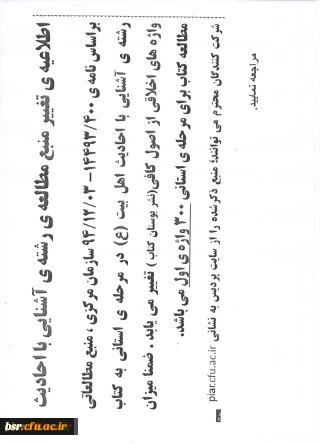 اطلاعیه ی تغییر منبع مطالعه ی رشته ی آشنایی با احادیث
براساس نامه ی ۱۴۴۹۳/۴۰۰ - ۹۴/۱۲/۰۳ سازمان مرکزی، منبع مطالعاتی
رشته ی آشنایی با احادیث اهل بیت (ع) در مرحله ی استانی به کتاب
واژه های اخلاقی از اصول کافی (نشر بوستان کتاب) تغییر می یابد. ضمنا میزان
مطالعه کتاب برای مرحله ی استانی ۳۰۰ واژه ی اول می باشد.
شرکت کنندگان محترم می توانند؛ منبع ذکر شده را از سایت پردیس به نشانی piar.cfu.ac.ir
مراجعه نمایید.
bsr.cfu.ac.ir